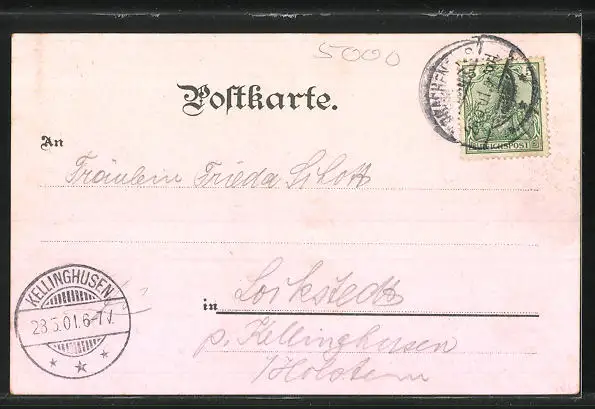 5000
Postkarte.
REICHSPOST
An
Fräulein Frieda Schott
KELLINGHUSEN
28.5.01.6-7V.
in Lockstedt
p. Kellinghusen
/Holstein